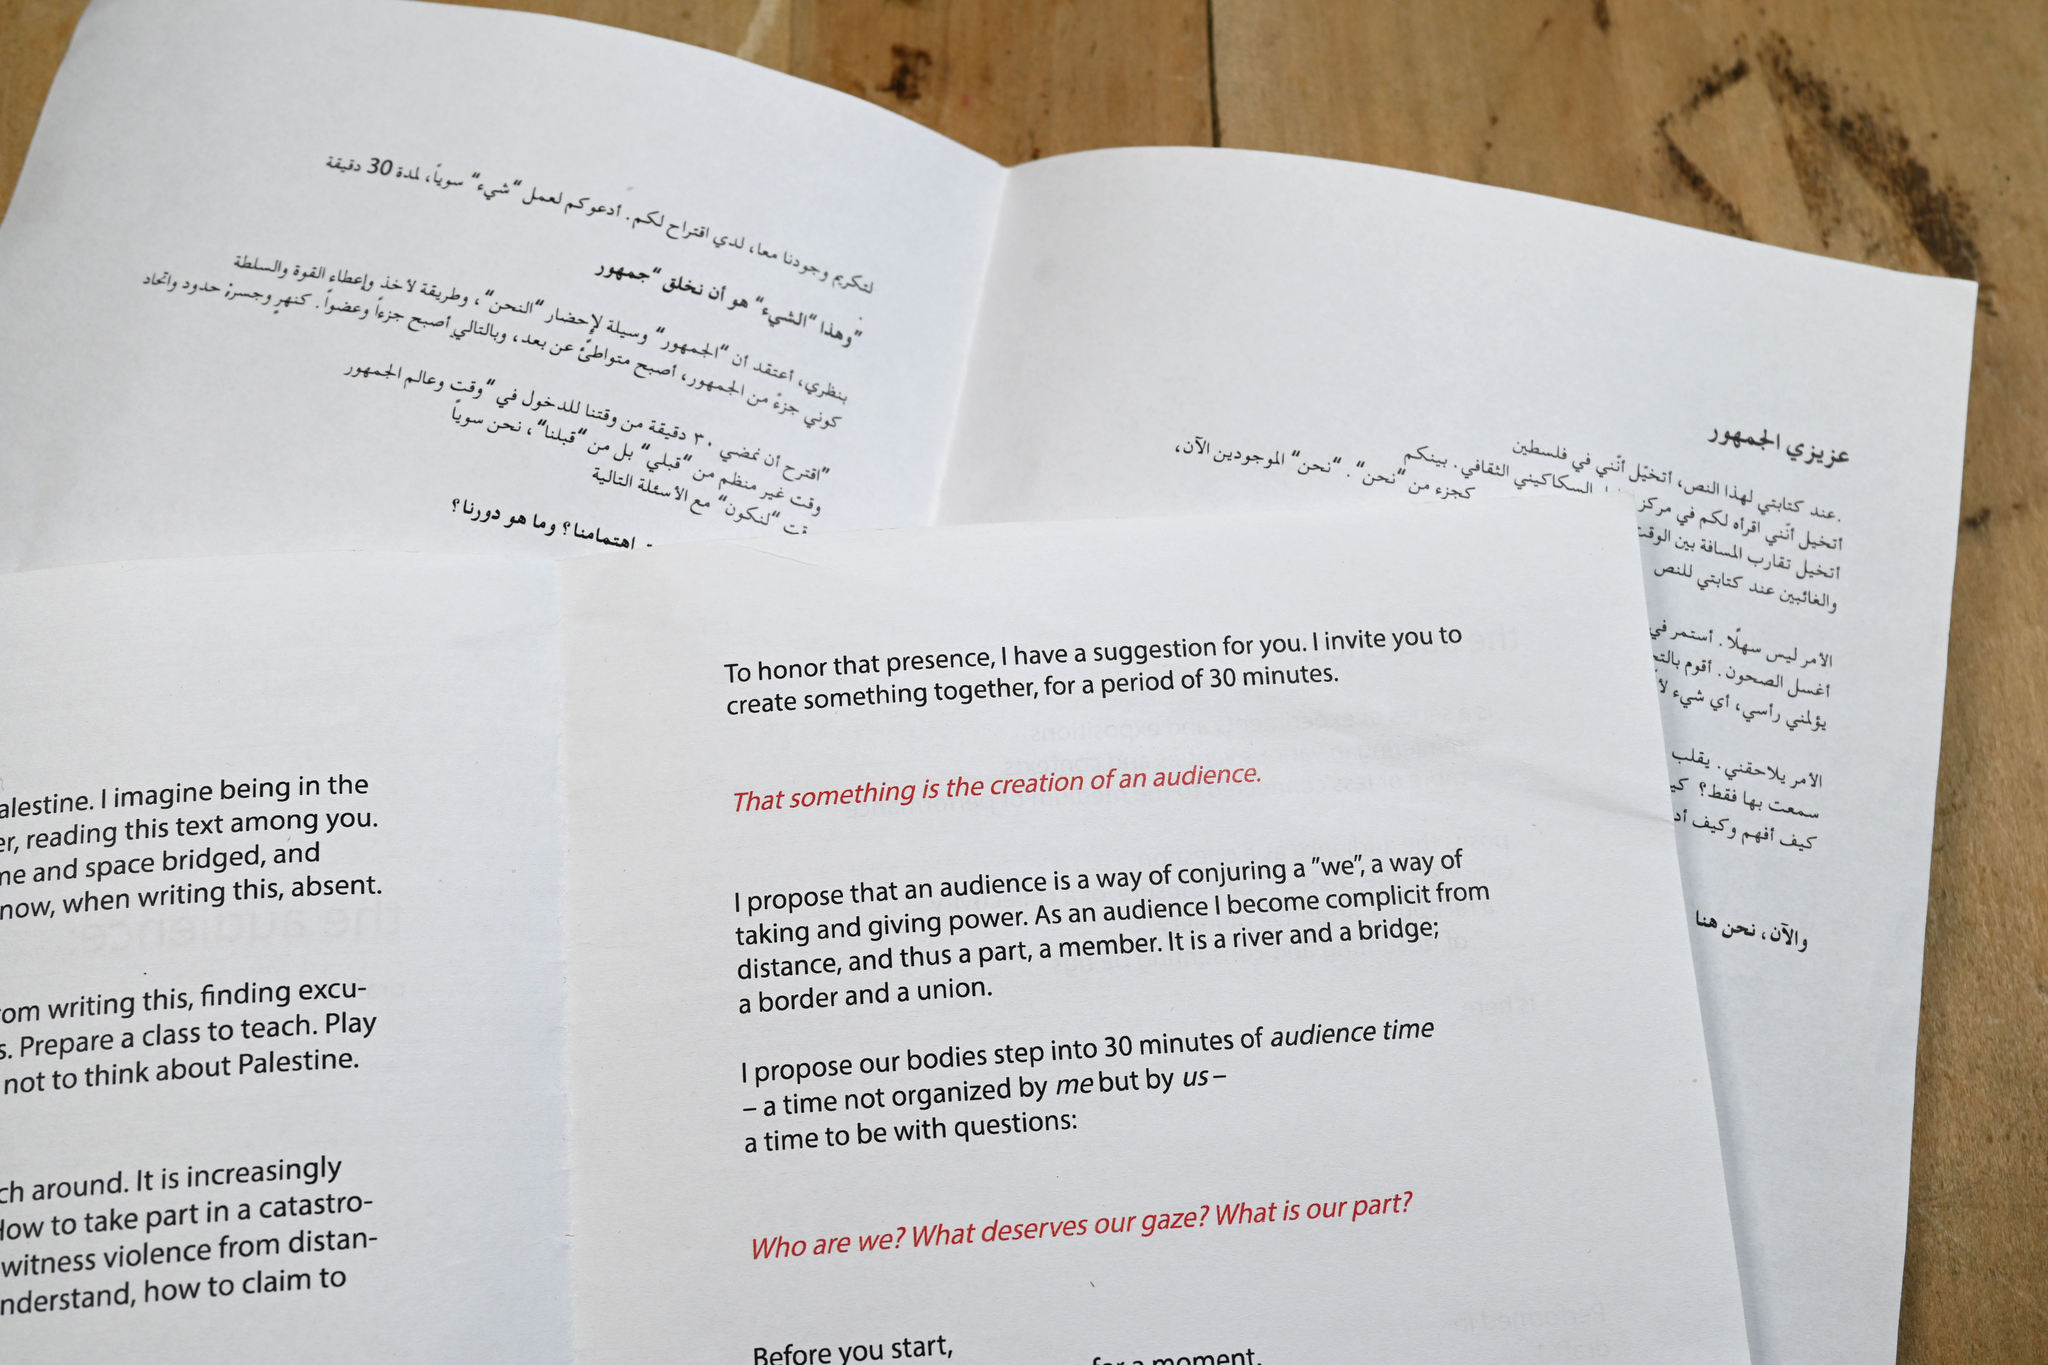 لتكريم وجودنا معا، لدي اقتراح لكم. أدعوكم لعمل “شيء“ سوياً، لمدة 30 دقيقة
”وهذا “الشيء“ هو أن نخلق “جمهور
بنظري، أعتقد أن “الجمهور“ وسيلة لإحضار “النحن“، وطريقة لأخذ وإعطاء القوة والسلطة
كوني جزءً من الجمهور، أصبح متواطئً عن بعد، وبالتالي أصبح جزءاً وعضواً. كنهرٍ وجسرٍ حدود واتحاد
”اقترح أن نمضي ٣٠ دقيقة من وقتنا للدخول في “وقت وعالم الجمهور
وقت غير منظم من “قبلي“ بل من “قبلنا“، نحن سوياً
“لنكون“ مع الأسئلة التالية
اهتمامنا؟ وما هو دورنا؟
عزيزي الجمهور
.عند كتابتي لهذا النص، أتخيّل أنّني في فلسطين
أتخيل أنّني اقرأه لكم في مركز السكاكيني الثقافي. بينكم
كجزء من “نحن“. “نحن“ الموجودين الآن،
أتخيل تقارب المسافة بين الوقت
والغائبين عند كتابتي للنص
الأمر ليس سهلًا. أستمر في
أغسل الصحون. أقوم
يؤلمني رأسي، أي شيء
الأمر يلاحقني. يقلب
سمعت بها فقط؟
كيف أفهم وكيف
والآن، نحن هنا
alestine. I imagine being in the
er, reading this text among you.
me and space bridged, and
now, when writing this, absent.
om writing this, finding excu-
s. Prepare a class to teach. Play
not to think about Palestine.
ch around. It is increasingly
How to take part in a catastro-
witness violence from distan-
nderstand, how to claim to
To honor that presence, I have a suggestion for you. I invite you to
create something together, for a period of 30 minutes.
That something is the creation of an audience.
I propose that an audience is a way of conjuring a ”we”, a way of
taking and giving power. As an audience I become complicit from
distance, and thus a part, a member. It is a river and a bridge;
a border and a union.
I propose our bodies step into 30 minutes of audience time
– a time not organized by me but by us –
a time to be with questions:
Who are we? What deserves our gaze? What is our part?
Before you start,
for a moment.